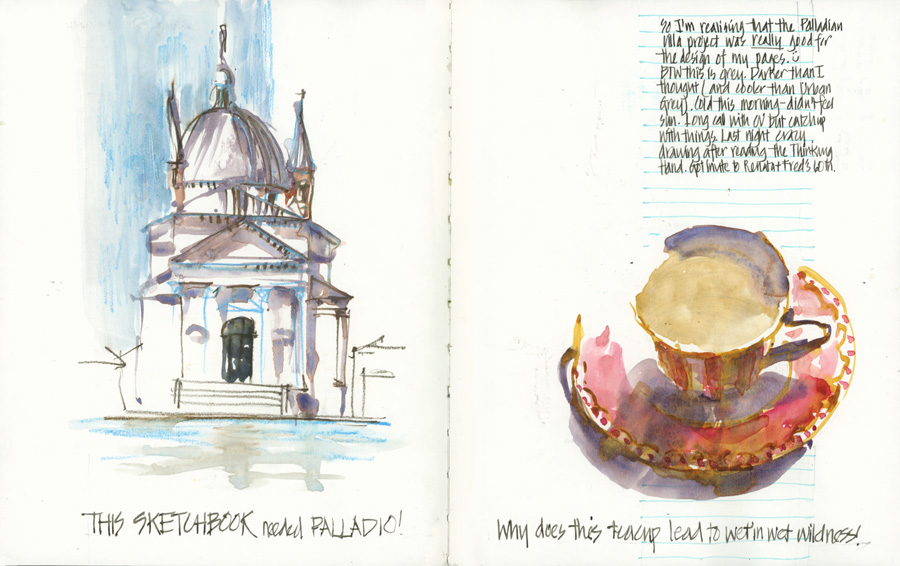 THIS SKETCHBOOK needed PALLADIO!
So I'm realising that the Palladian
villa project was really good for
the design of my pages.
BTW this is grey. Darker than I
thought (and cooler than
Grey). Cold this morning - didn't feel
slim. Long call with but catch up
with things. Last night crazy
drawing after reading the Thinking
Hand. to Fred's both.
Why does this teacup lead to wet in wet wildness!